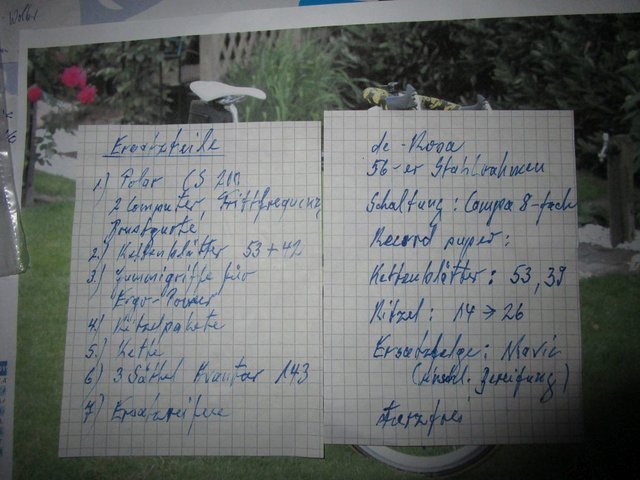 Ersatzteile
1) Polar CS 200
2 Computer, Trittfrequenz
Brustgurte,
2.) Kettenblätter 53+42
3.) Gummigriffe für
Ergo-Power
4.) Ritzelpakete
5.) Kette
6) 3 Sättel 143
7) Ersatzreifen
de-Rosa
56-er Stahlrahmen
Schaltung: Campa 8-fach
Record super:
Kettenblätter: 53, 39
Ritzel: 14 → 26
Ersatzfelge: Mavic
(einschl. Bereifung)